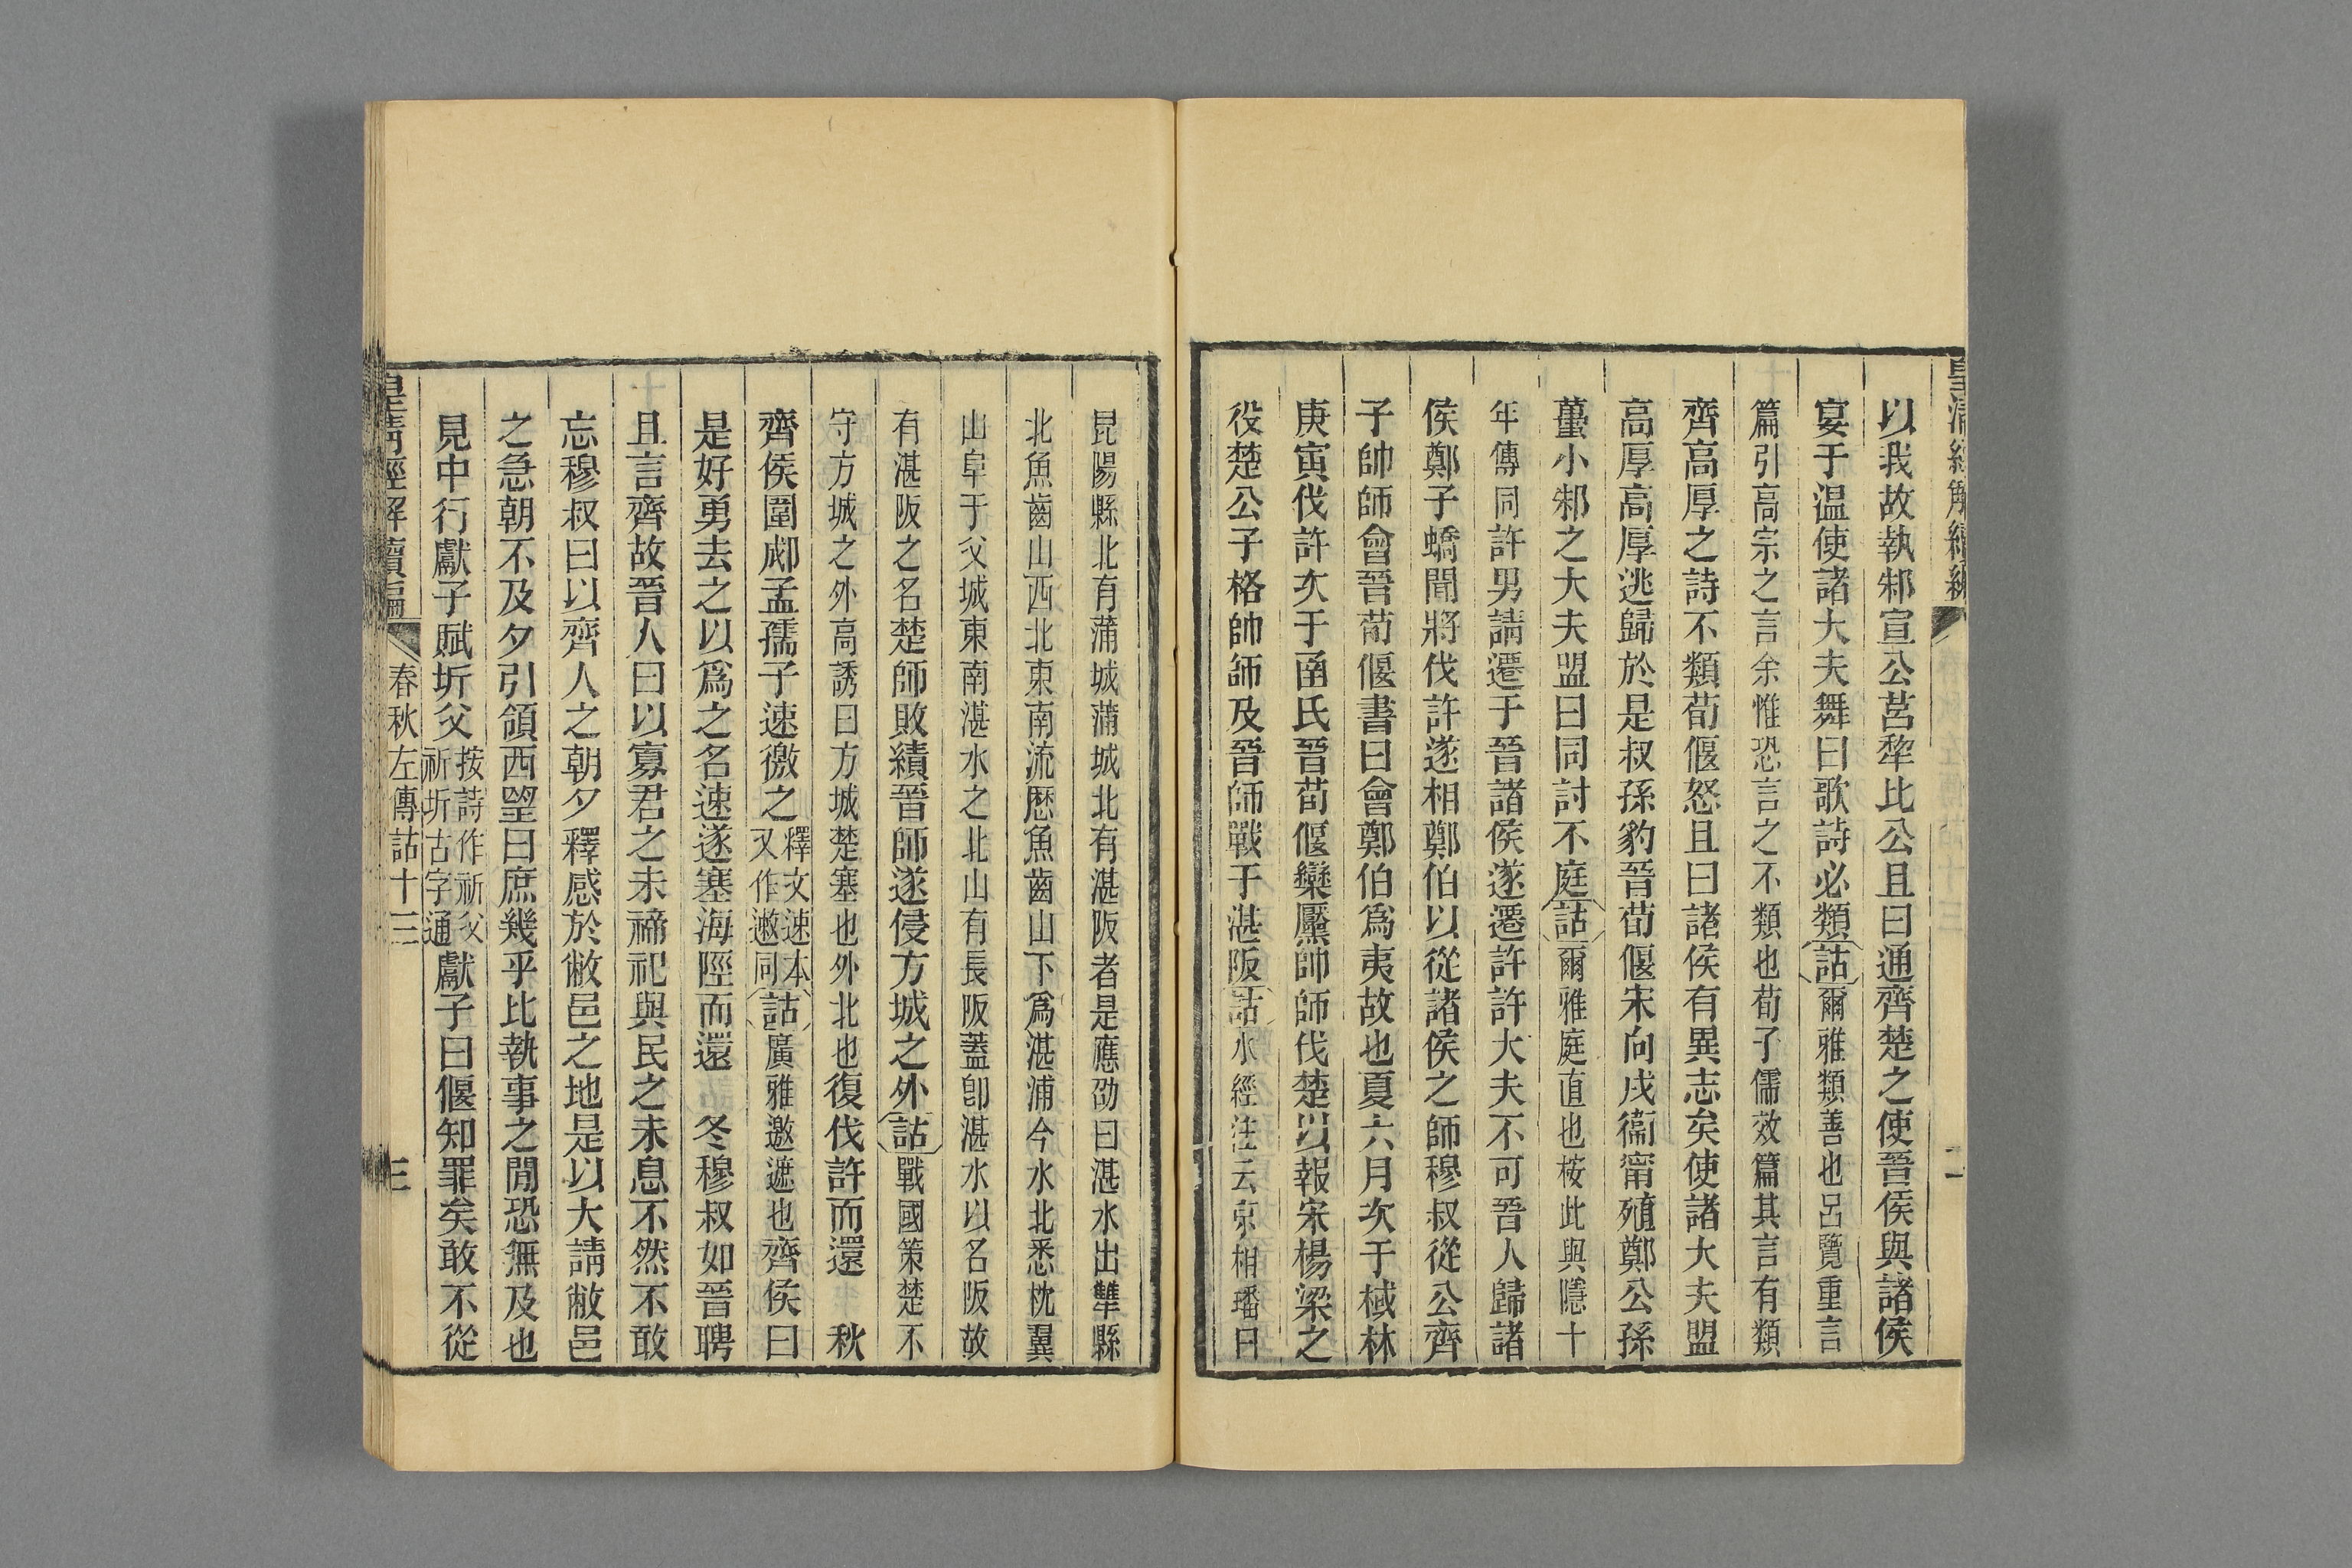 皇清經解續編
二
以我故執邾宣公莒犂比公且曰通齊楚之使晉侯與諸侯
宴于温使諸大夫舞曰歌詩必類詁爾雅類善也呂覽重言
篇引高宗之言余惟恐言之不類也荀子儒效篇其言有類
齊高厚之詩不類荀偃怒且曰諸侯有異志矣使諸大夫盟
高厚高厚逃歸於是叔孫豹晉荀偃宋向戌衞甯殖鄭公孫
蠆小邾之大夫盟曰同討不庭詁爾雅庭直也桉此與隱十
年傳同許男請遷于晉諸侯遂遷許許大夫不可晉人歸諸
侯鄭子蟜聞將伐許遂相鄭伯以從諸侯之師穆叔從公齊
子帥師會晉荀偃書曰會鄭伯爲夷故也夏六月次于棫林
庚寅伐許次于函氏晉荀偃欒黶帥師伐楚以報宋楊梁之
役楚公子格帥師及晉師戰于湛阪詁水經注云京相璠曰
昆陽縣北有蒲城蒲城北有湛阪者是應劭曰湛水出犨縣
北魚齒山西北東南流歷魚齒山下爲湛浦今水北悉枕翼
山阜于父城東南湛水之北山有長阪蓋卽湛水以名阪故
有湛阪之名楚師敗績晉師遂侵方城之外詁戰國策楚不
守方城之外高誘曰方城楚塞也外北也復伐許而還 秋
齊侯圍郕孟孺子速徼之釋文速本又作遬同詁廣雅邀遮也齊侯曰
是好勇去之以爲之名速遂塞海陘而還 冬穆叔如晉聘
且言齊故晉人曰以寡君之未禘祀與民之未息不然不敢
忘穆叔曰以齊人之朝夕釋感於敝邑之地是以大請敝邑
之急朝不及夕引領西望曰庶幾乎比執事之閒恐無及也
見中行獻子賦圻父按詩作祈父祈圻古字通獻子曰偃知罪矣敢不從
皇清經解續編
春秋左傳詁十三
三